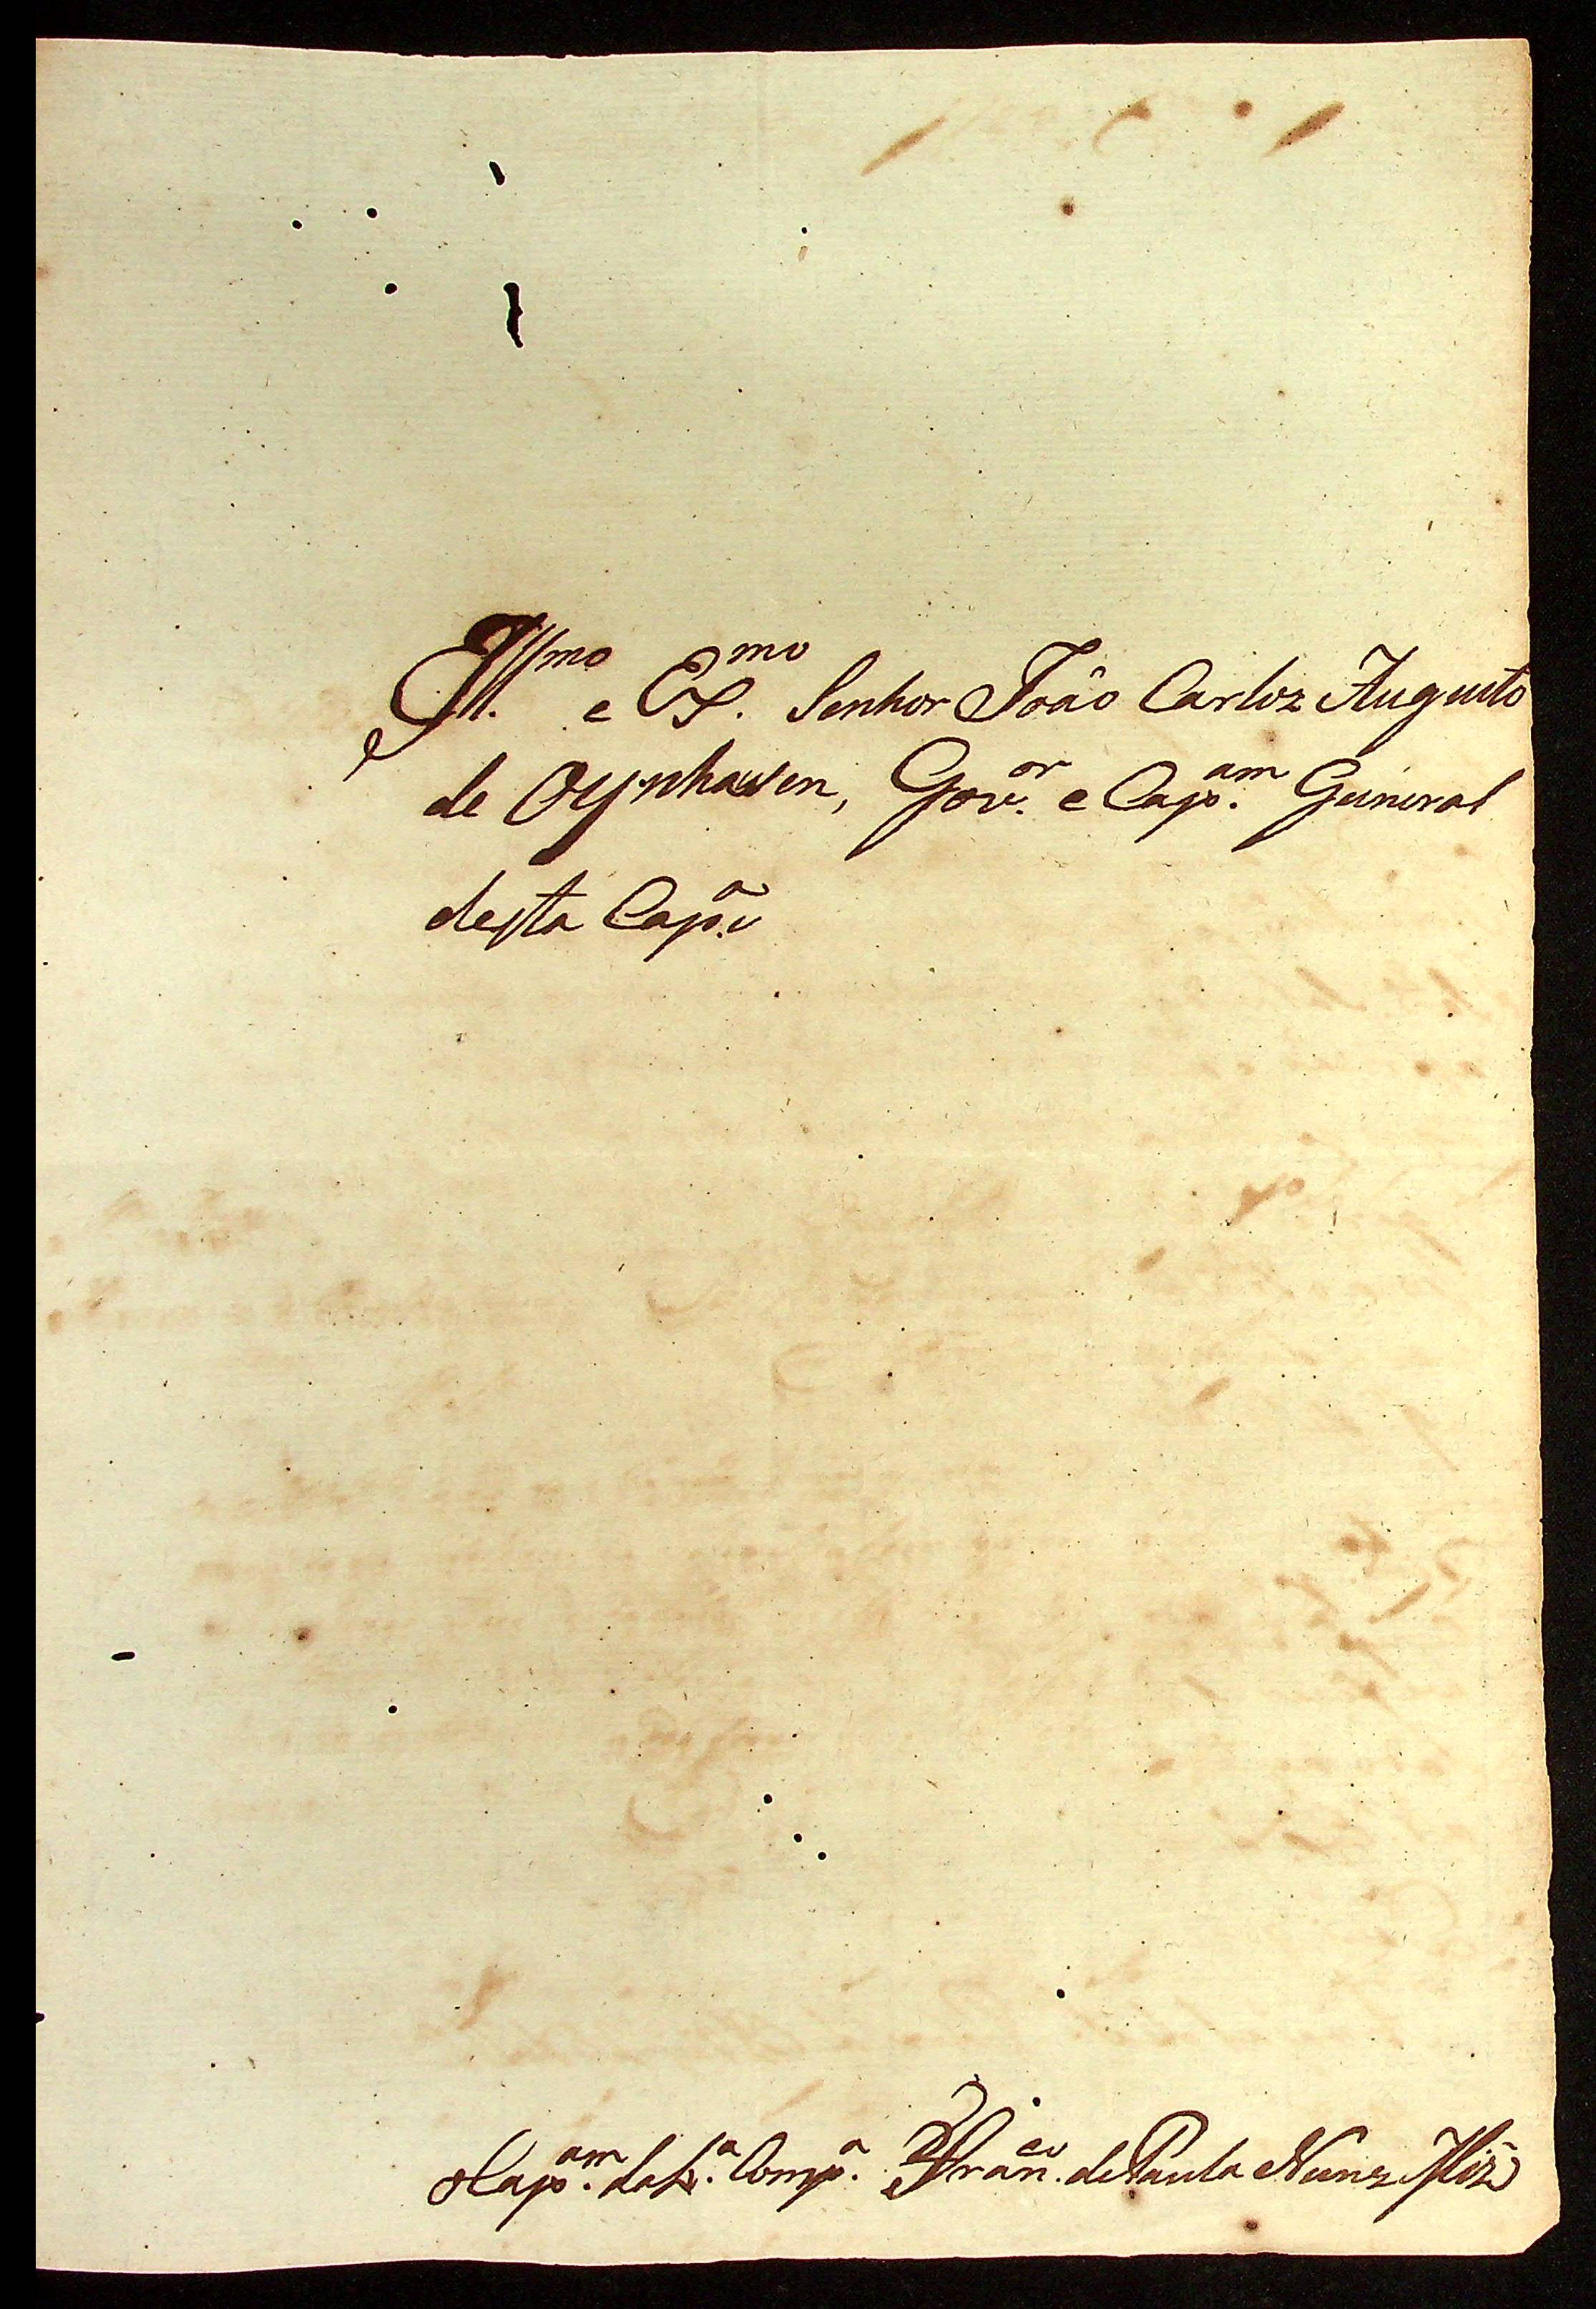 Ill.mo e Ex.mo Senhor João Carloz Augusto
de Oynhausen, Gov.or e Cap.am General
desta Cap.a
Cap.am da Comp.a Fran.co de Paula Nunez